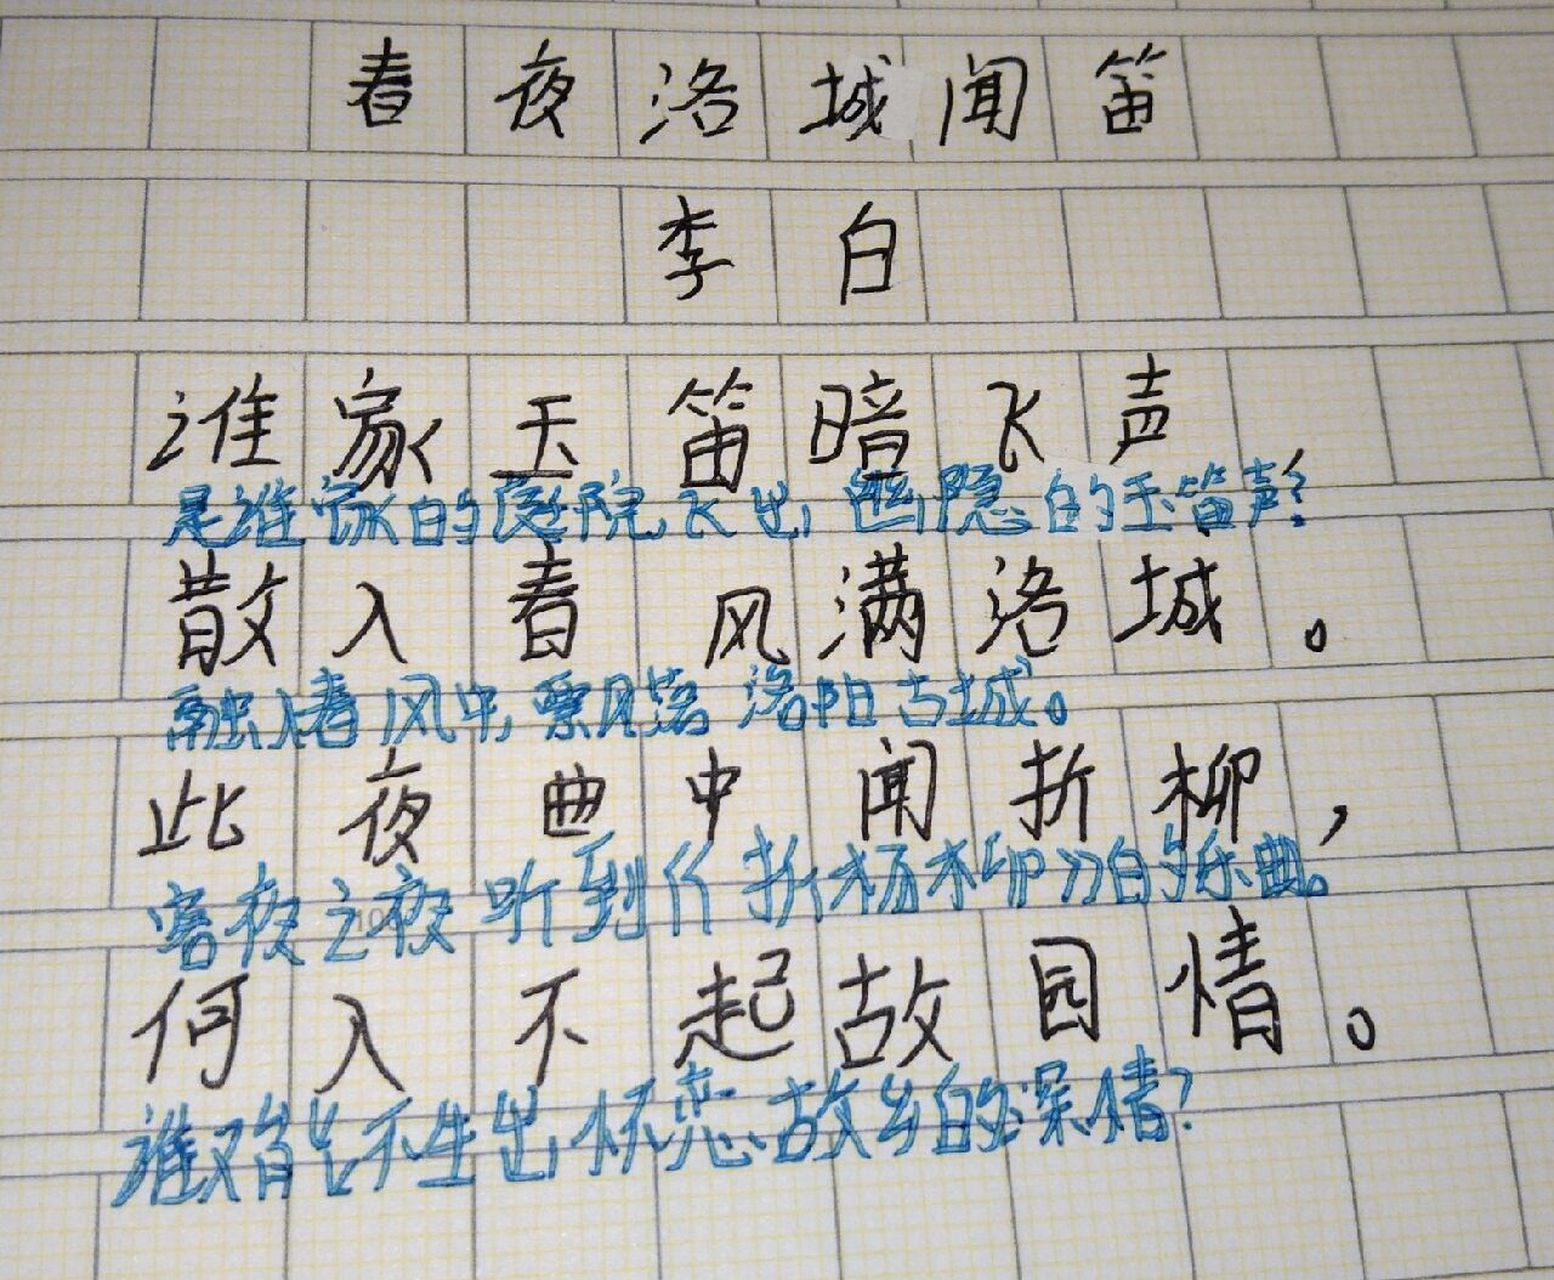 春夜洛城闻笛
李白
谁家玉笛暗飞声，
是谁家的庭院,飞出幽隐的玉笛声?
散入春风满洛城。
融入春风中,飘落洛阳古城。
此夜曲中闻折柳，
客夜之夜听到《折杨柳》的乐曲。
何入不起故园情。
谁又能不生出怀恋故乡的深情?